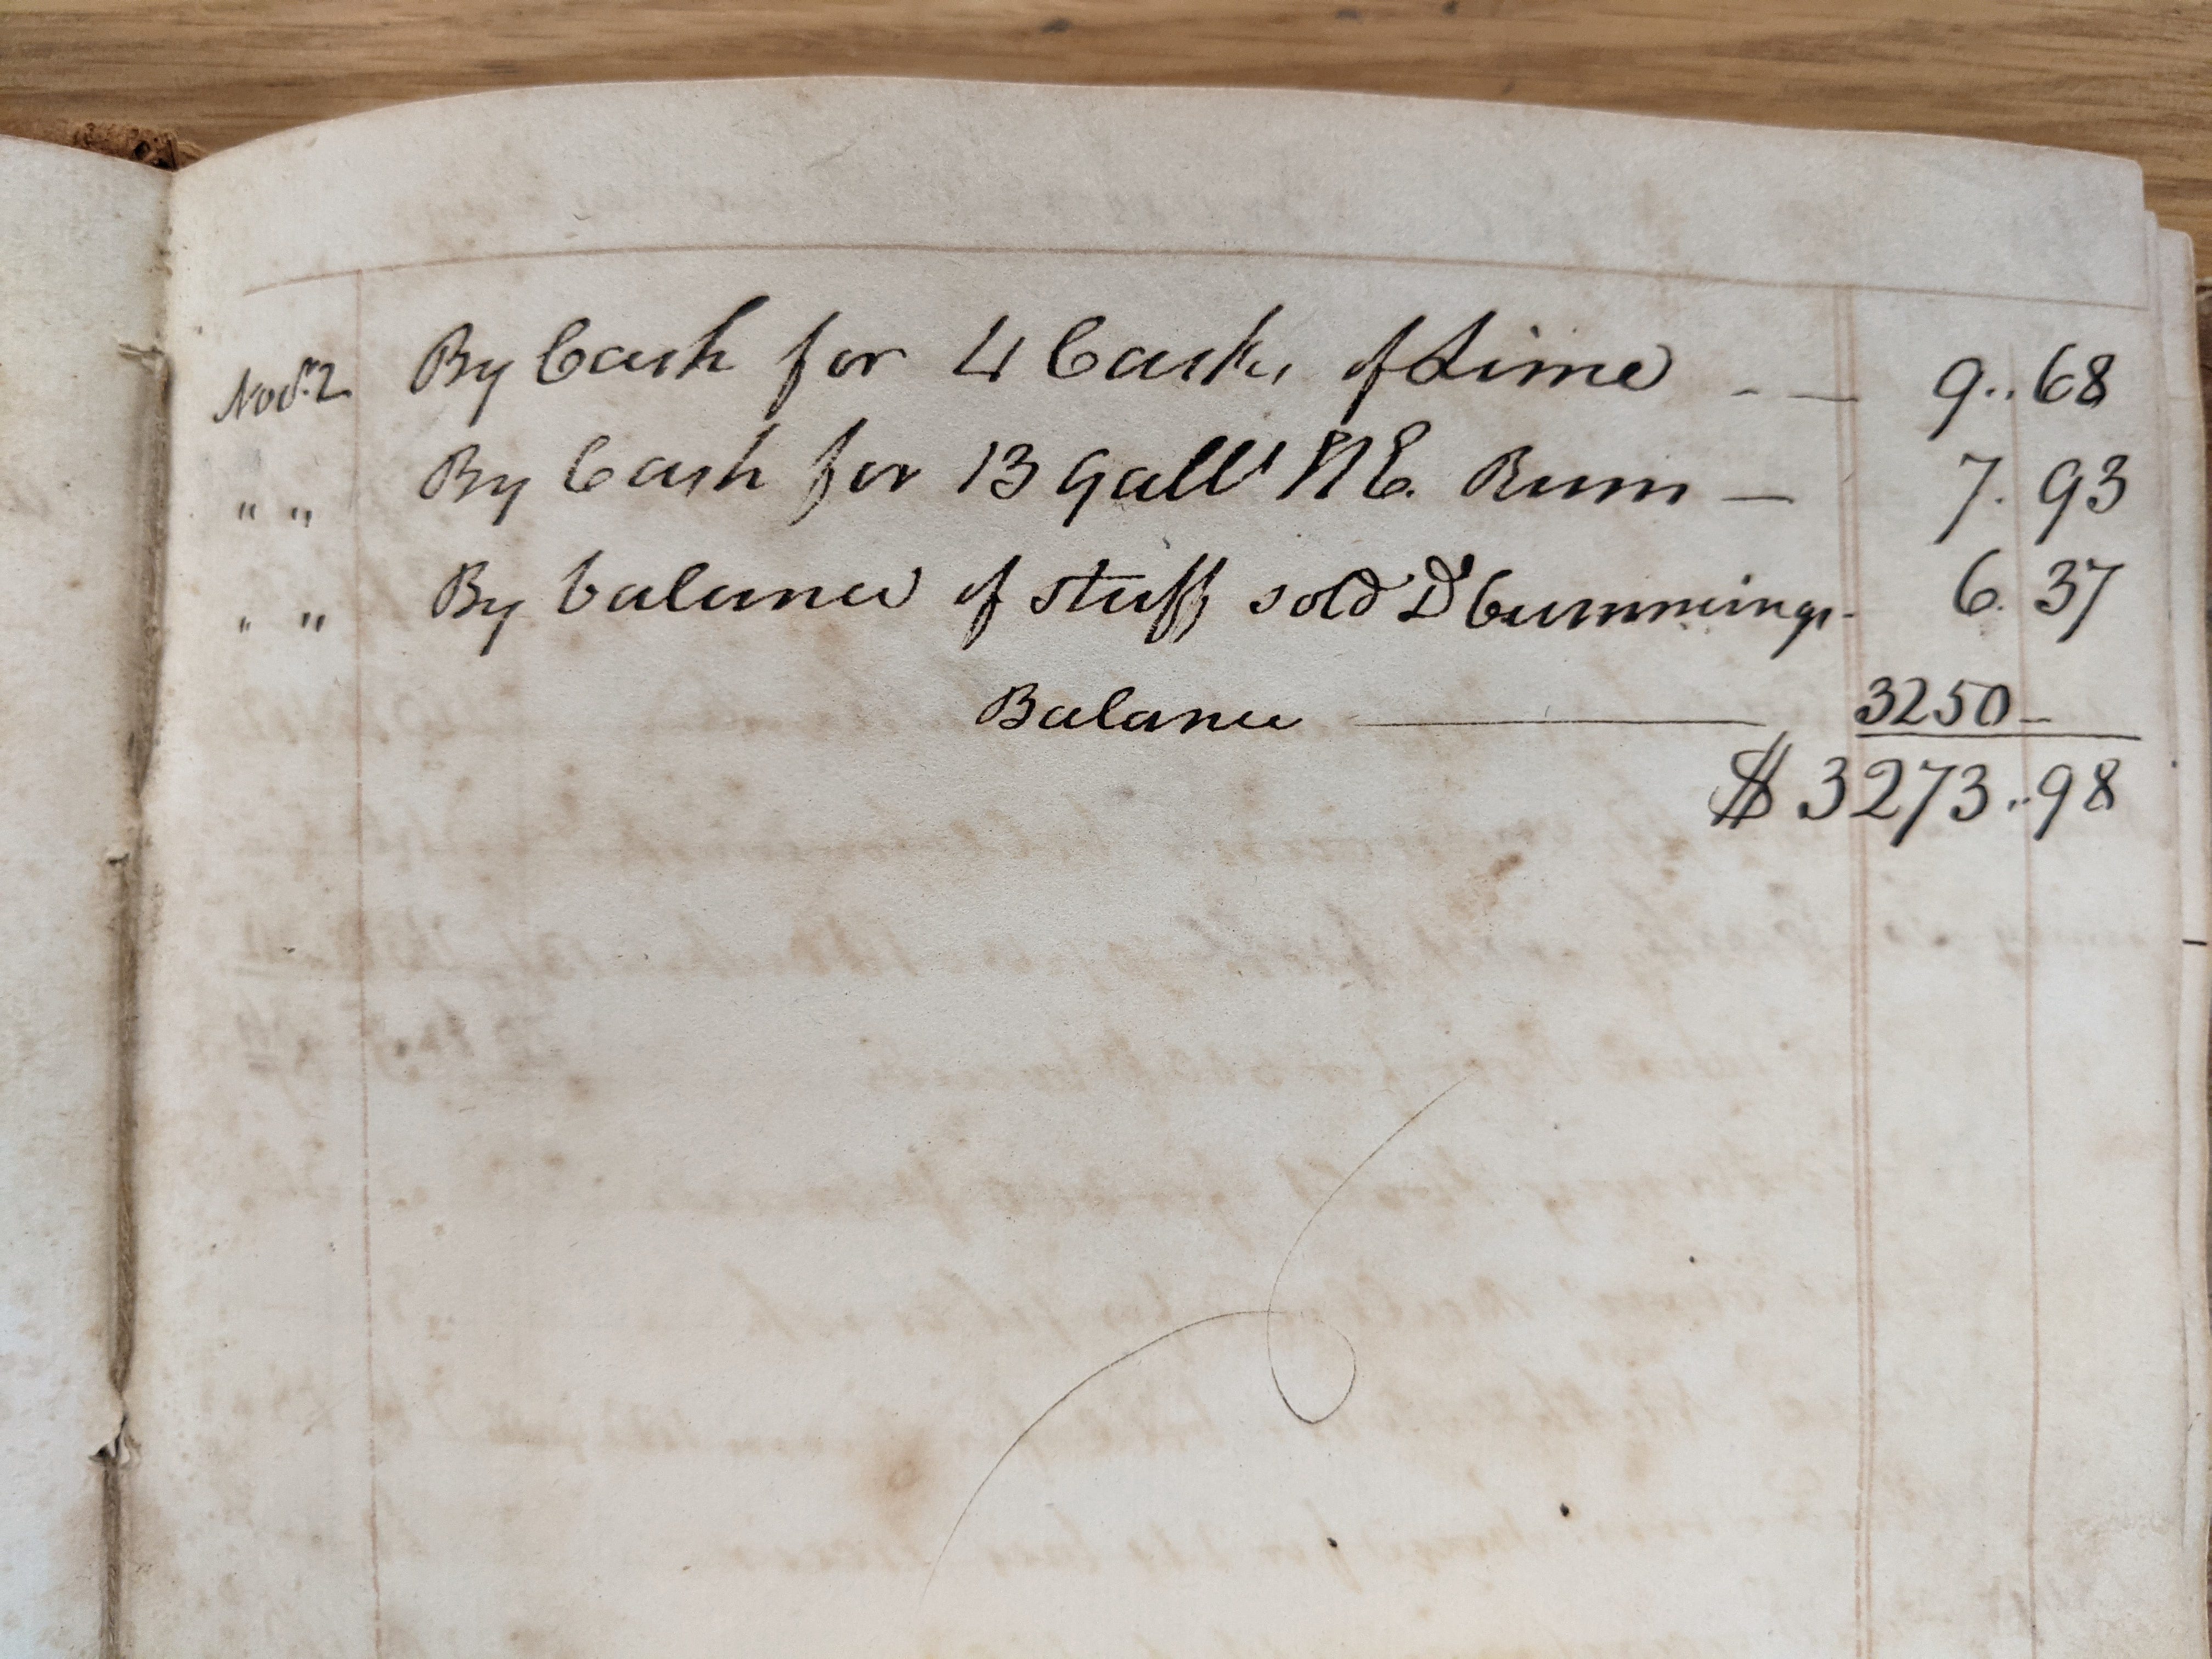 Nov.r 2 By Cash for 4 Casks of Lime - — 9..68
" " By Cash for 13 Galls N E. Rum — 7. 93
" " By balance of stuff sold D Cummings - 6. 37
Balance ——— 3250 –
$ 3273..98